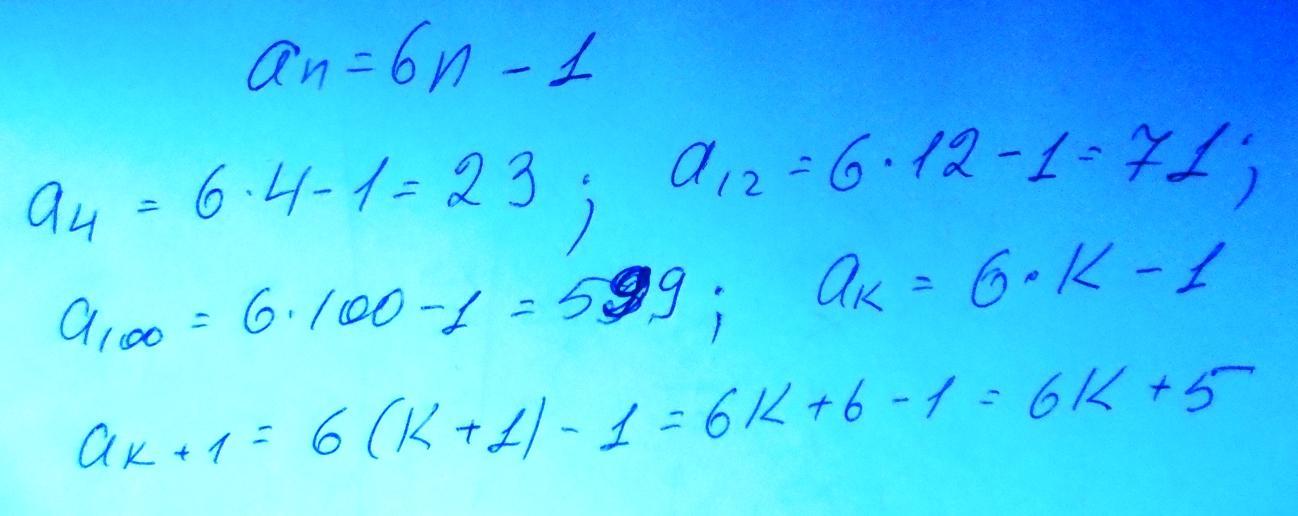 an = 6n - 1
a4 = 6·4 - 1 = 23; a12 = 6·12 - 1 = 71;
a100 = 6·100 - 1 = 599; aк = 6·к - 1
aк+1 = 6(к+1) - 1 = 6к + 6 - 1 = 6к + 5